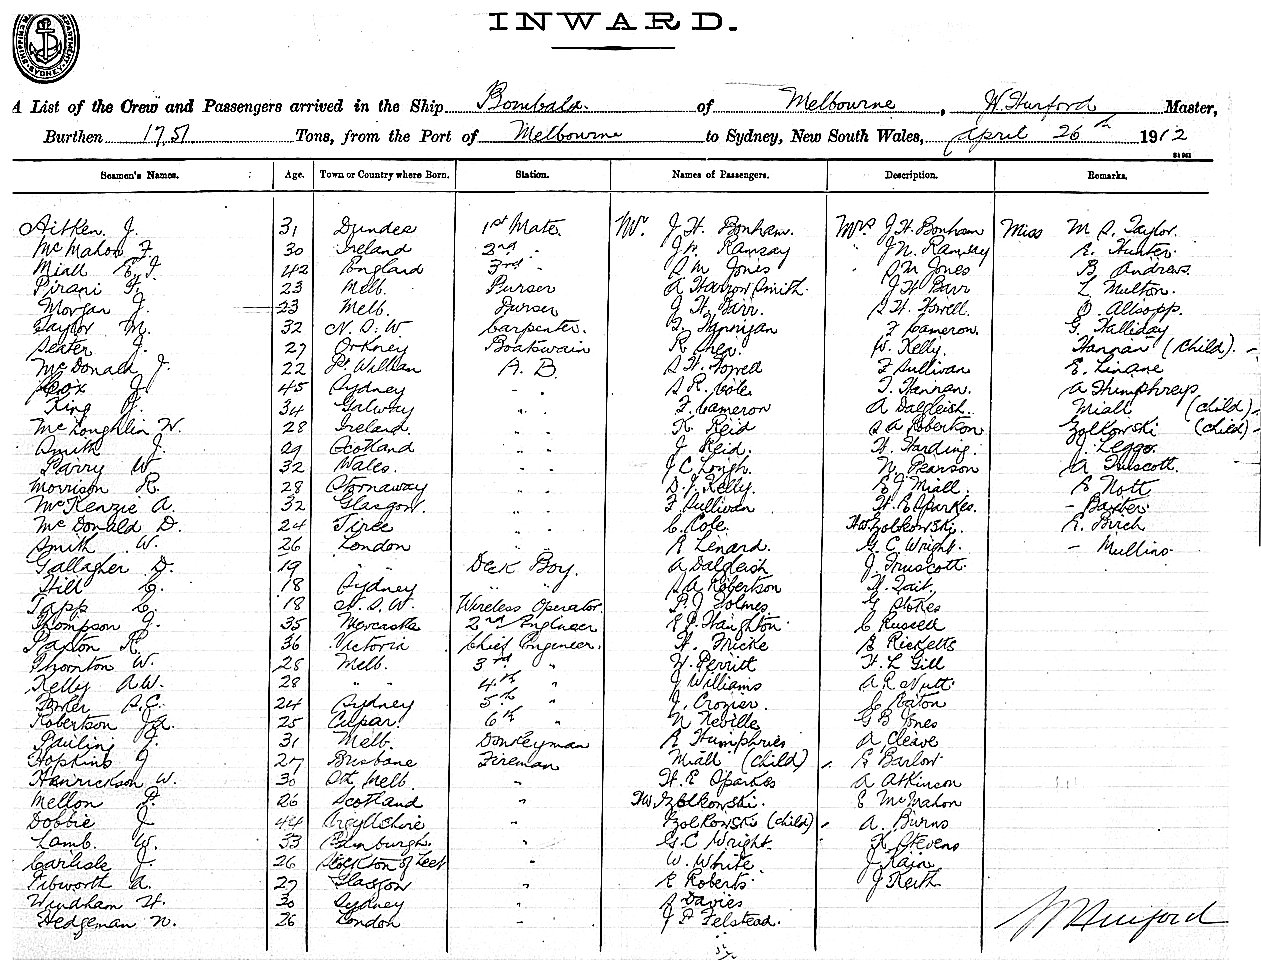 INWARD.
SYDNEY
A List of the Crew and Passengers arrived in the Ship Bombala. of Melbourne, W. Hurford Master,
Burthen 1751 Tons, from the Port of Melbourne to Sydney, New South Wales, April 26th 1912
Seamen's Names. : Age. Town or Country where Born. Station. Names of Passengers. Description. Remarks.
Aitken J. 31 Dundee 1st Mate. Mr. J. H. Bonham. Mrs J. H. Bonham Miss M. S. Taylor.
McMahon F. 30 Ireland 2nd " J. N. Ramsay J. N. Ramsay E. Hunter
Miall E. J. 42 England 3rd " S M Jones " S M Jones B Andrews.
Pirani F. 23 Melb. Purser A Harrow Smith. J H Farr L Multon.
Morgan J. 23 Melb. Purser J. H. Farr. S H. Howell. D Allsopp.
Taylor M. 32 N. S. W Carpenter. Hannigan F Cameron. G. Halliday
Senter J. 27 Orkney Boatswain R Shea. W. Kelly. Hannan (child). -
McDonald J. 22 Ft. William A. B. S. H. Howell F Sullivan E. Linane
Cox J. 45 Sydney " " S. R. Cole. T. Hannan. A Humphreys
King J. 34 Galway " " F. Cameron A Dalgleish. Miall (child) -
McLoughlin W. 28 Ireland. " " R. Reid S A Robertson Zolkowski (child) -
Smith J. 29 Scotland " " J. Reid. H. Harding. J. Leggo.
Parry W. 32 Wales. " " J C Lough. W. Pearson A Truscott.
Morrison R. 28 Stornaway " " D. J. Kelly. E J Miall. E Nott
McKenzie A. 32 Glasgow. " " F Sullivan H. E Sparkes. - Baxter.
McDonald D. 24 Tiree " " C. Cole. Zolkowski. E. Birch
Smith W. 26 London " " R Lenard. G. C Wright. - Mullins.
Gallagher D. 19 " " Deck Boy. A Dalgleish J. Truscott.
Hill C. 18 Sydney " " S. A. Robertson H. Tait.
Tapp C. 18 N. S. W. Wireless Operator. P. J Holmes G Stokes
Thompson J. 35 Newcastle 2nd Engineer E P. Haighton. C Russell
Paxton R. 36 Victoria Chief Engineer. H. Micke E Ricketts
Thornton W. 28 Melb. 3rd " H. Perritt H. L Gill
Kelly A.W. 28 " " 4th " J Williams A R Nutt.
S.C. 24 Sydney 5th " J. Crozier. C Eaton
Robertson J.A. 25 Cupar. 6th " N Neville G B Jones
Pauling J. 31 Melb. Donkeyman R Humphries A Cleave
Hopkins J 27 Brisbane Fireman Miall (child) - E Barlow.
Henrickson W. 30 Melb. " H. E Sparkes A Atkinson
Mellon P. 26 Scotland " Zolkowski. E McMahon
Dobbie J 44 Argyllshire " Zolkowski (child) - A. Burns
Lamb. W. 33 Edinburgh. " G. C Wright. K. Stevens
Carlisle J. 26 Stockton of Tees " W. White. J Kain.
Titworth A. 27 Glasgow " E Roberts. J Keith.
Wyndham H. 30 Sydney " S Davies
Hedgeman W. 26 London " J F Felstead.
W Hurford